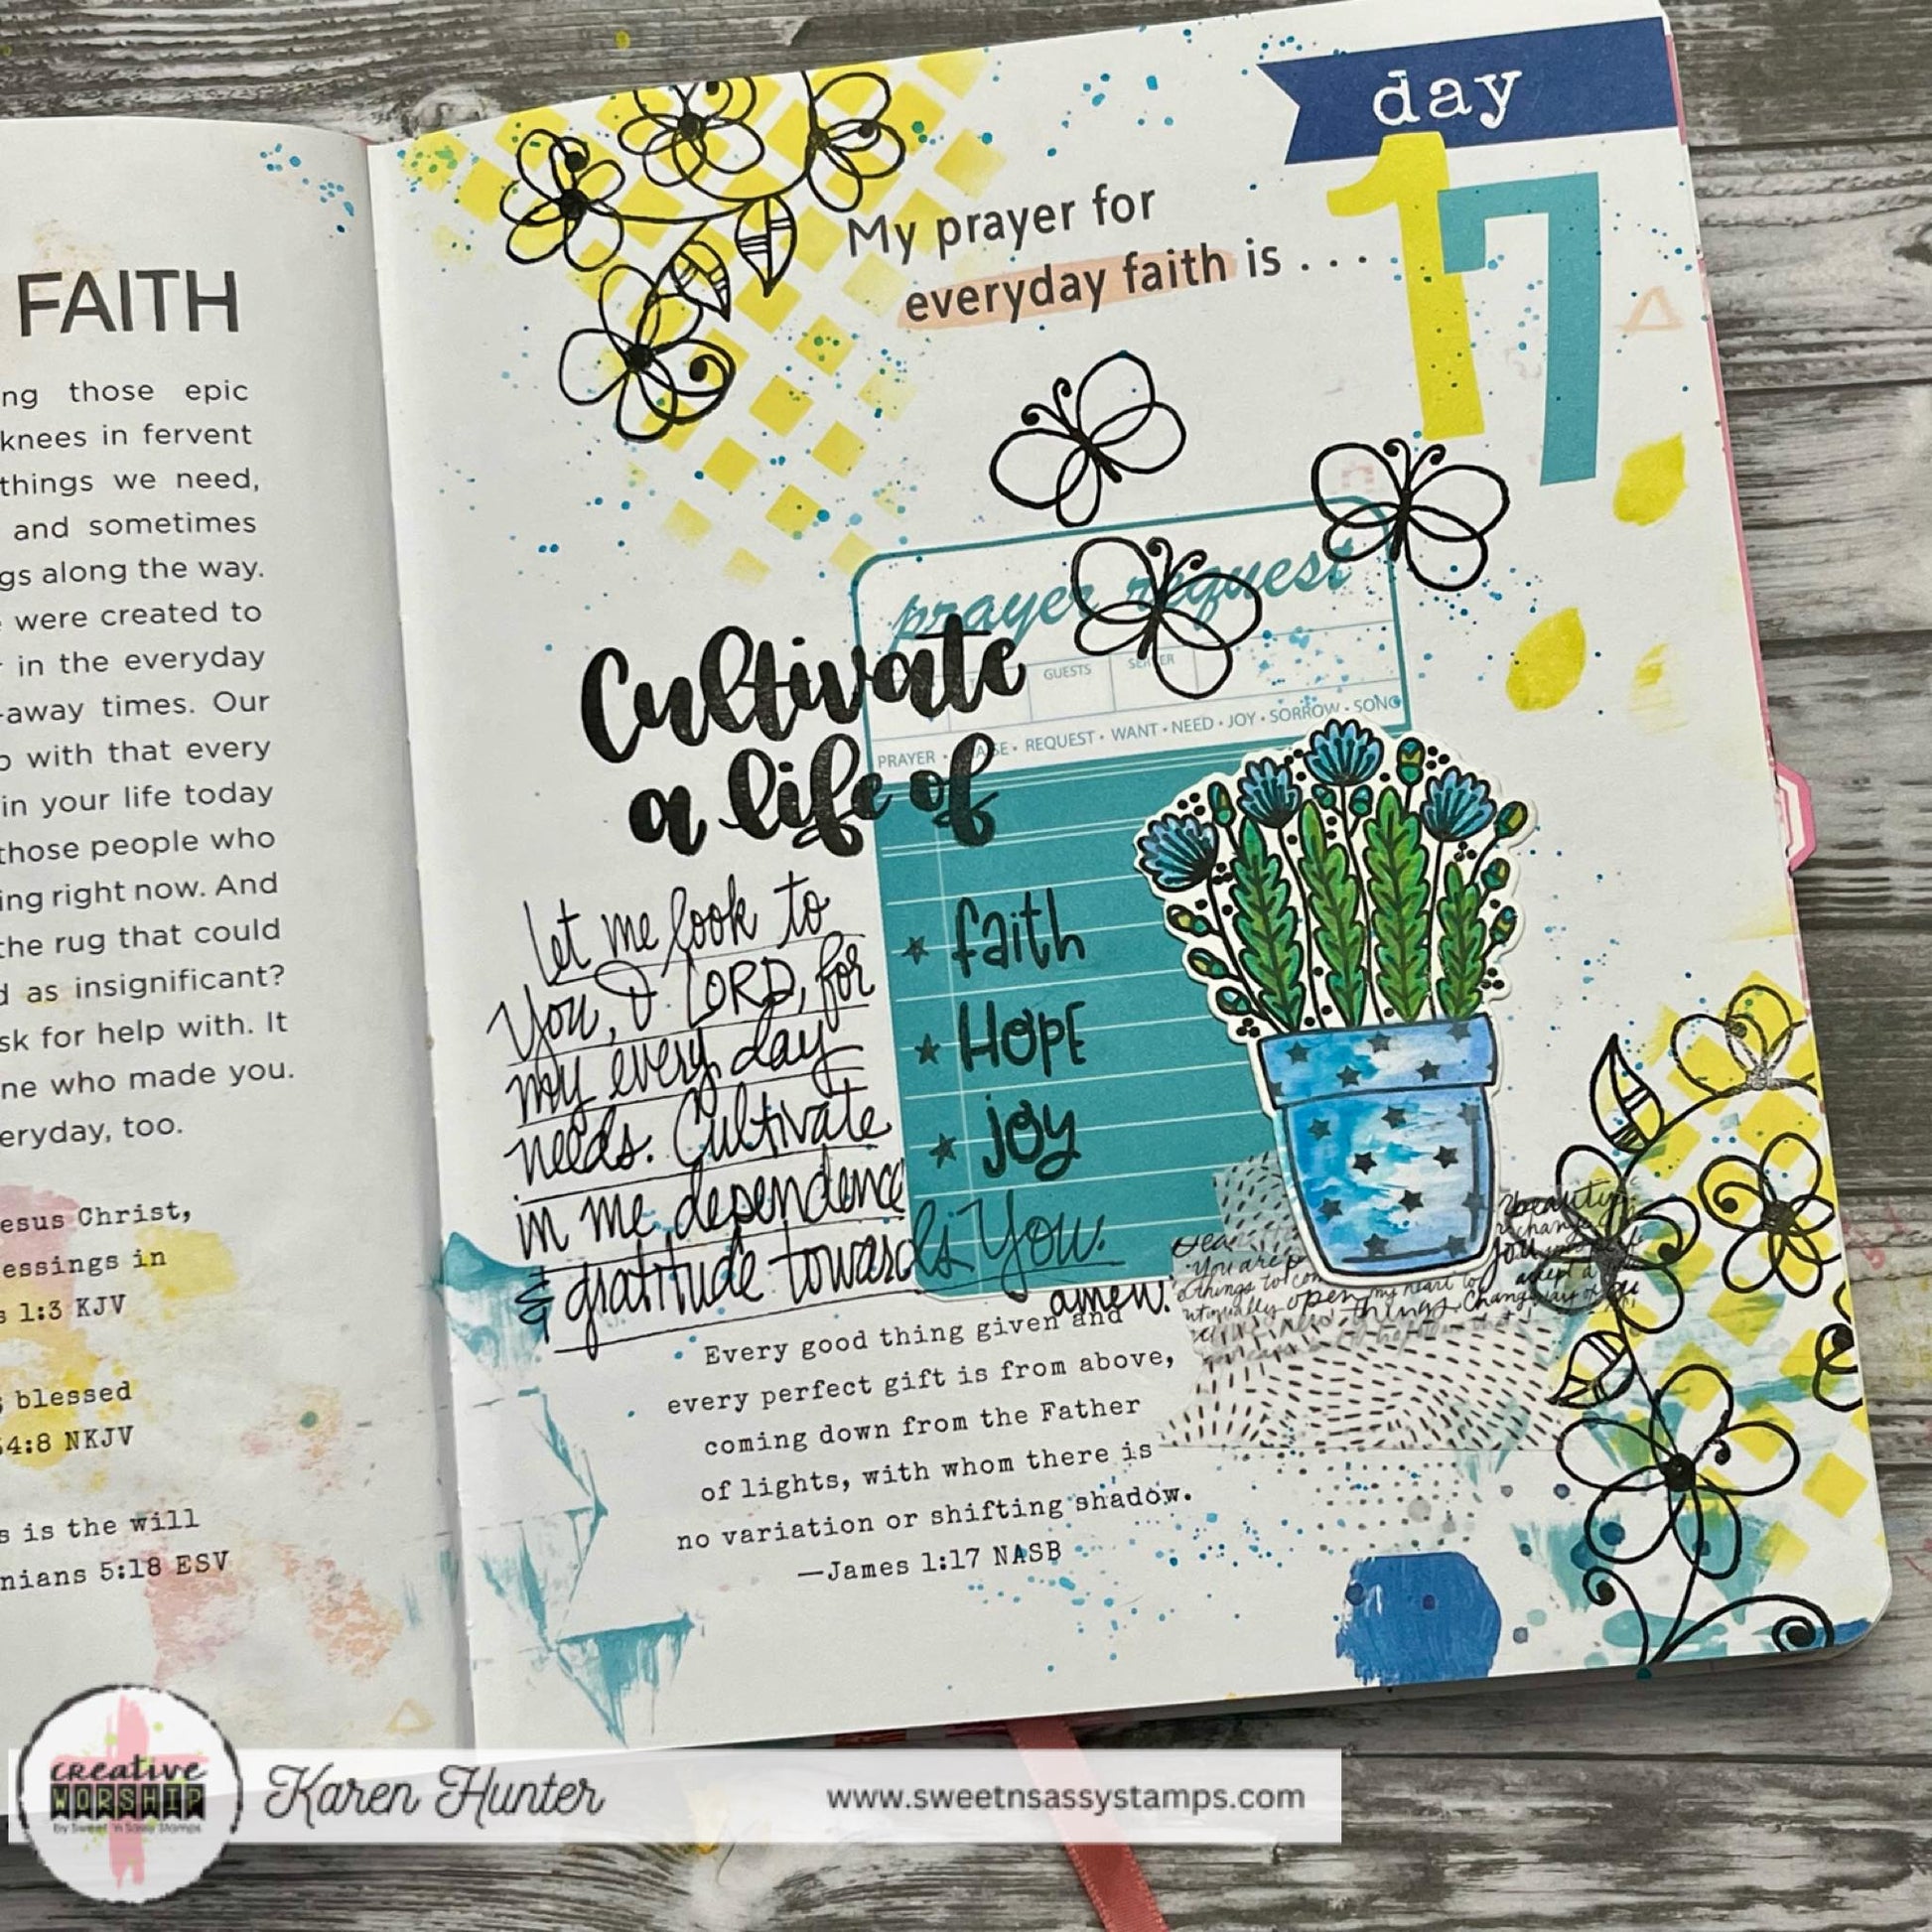 FAITH
ng those epic
knees in fervent
things we need,
and sometimes
gs along the way.
were created to
in the everyday
-away times. Our
with that every
in your life today
those people who
ing right now. And
the rug that could
d as insignificant?
sk for help with. It
ne who made you.
eryday, too.
esus Christ,
essings in
s 1:3 KJV
s blessed
34:8 NKJV
s is the will
nians 5:18 ESV
day
17
My prayer for
everyday faith is . . .
prayer request
GUESTS
PRAYER • REQUEST • WANT • NEED • JOY • SORROW • SONG
Cultivate
a life of
★ faith
★ HOPE
★ joy
Let me look to
You, O LORD, for
my every day
needs. Cultivate
in me dependence
& gratitude towards You.
amen.
Every good thing given and
every perfect gift is from above,
coming down from the Father
of lights, with whom there is
no variation or shifting shadow.
—James 1:17 NASB
creative
WORSHIP
by Sweet 'n Sassy Stamps
Karen Hunter
www.sweetnsassystamps.com